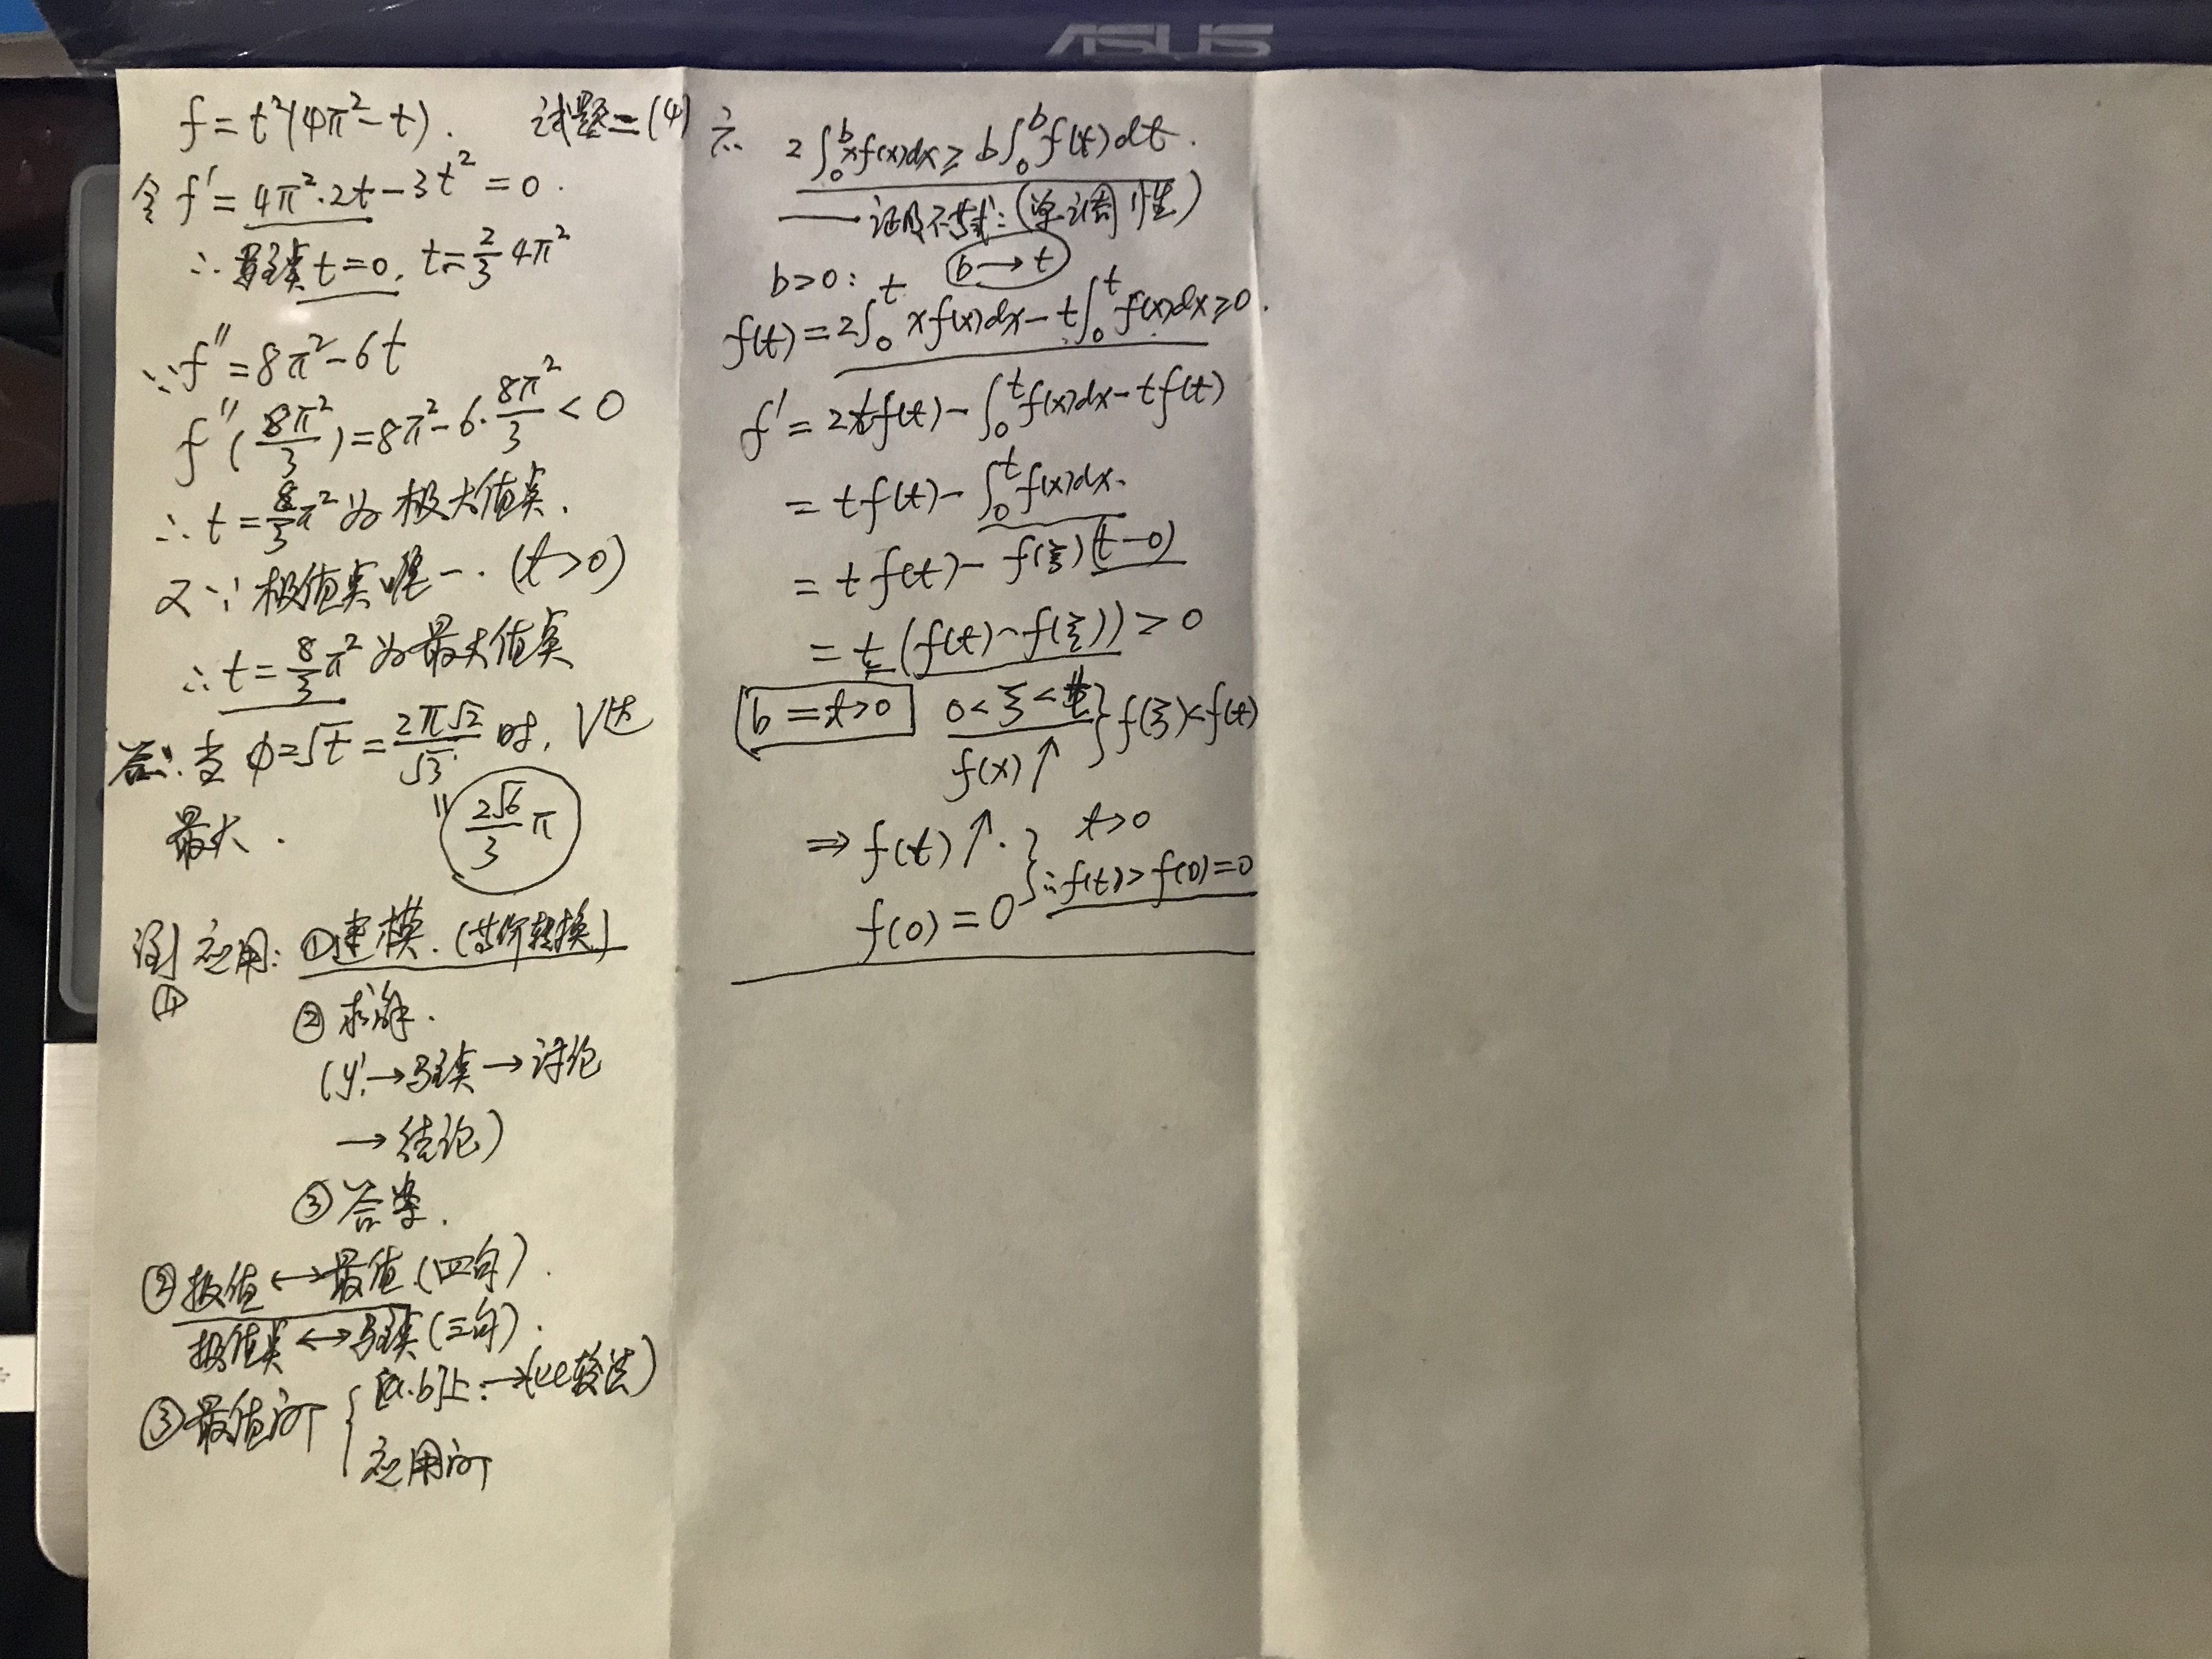 ASUS
f = t²(4π² - t). 试题二(4)
令 f' = 4π²·2t - 3t² = 0.
∴ 驻点 t=0, t=2/3 4π²
∵ f'' = 8π² - 6t
f''(8π²/3) = 8π² - 6·8π²/3 < 0
∴ t = 8/3 π² 为极大值点.
又∵ 极值点唯一. (t>0)
∴ t = 8/3 π² 为最大值点
答: 当 φ=√t = 2π√2/√3 时, V达
最大. " 2√6/3 π
应用: ①建模. (等价转换)
①
②求解.
(y' → 驻点 → 讨论
→ 结论)
③答案.
② 极值 ↔ 最值 (四句).
极值点 ↔ 驻点 (三句).
③ 最值问 { [a.b]上: → (比较法)
应用问
六 2∫₀ᵇ xf(x)dx ≥ b∫₀ᵇ f(t)dt.
—— 证明不等式: (单调性)
b>0: b → t
f(t) = 2∫₀ᵗ xf(x)dx - t∫₀ᵗ f(x)dx ≥ 0.
f' = 2tf(t) - ∫₀ᵗ f(x)dx - tf(t)
= tf(t) - ∫₀ᵗ f(x)dx.
= tf(t) - f(ξ)(t-0)
= t(f(t) - f(ξ)) ≥ 0
b = t>0 0<ξ<t } f(ξ)<f(t)
f(x)↑
⇒ f(t)↑. } t>0
∴ f(t) > f(0)=0
f(0) = 0